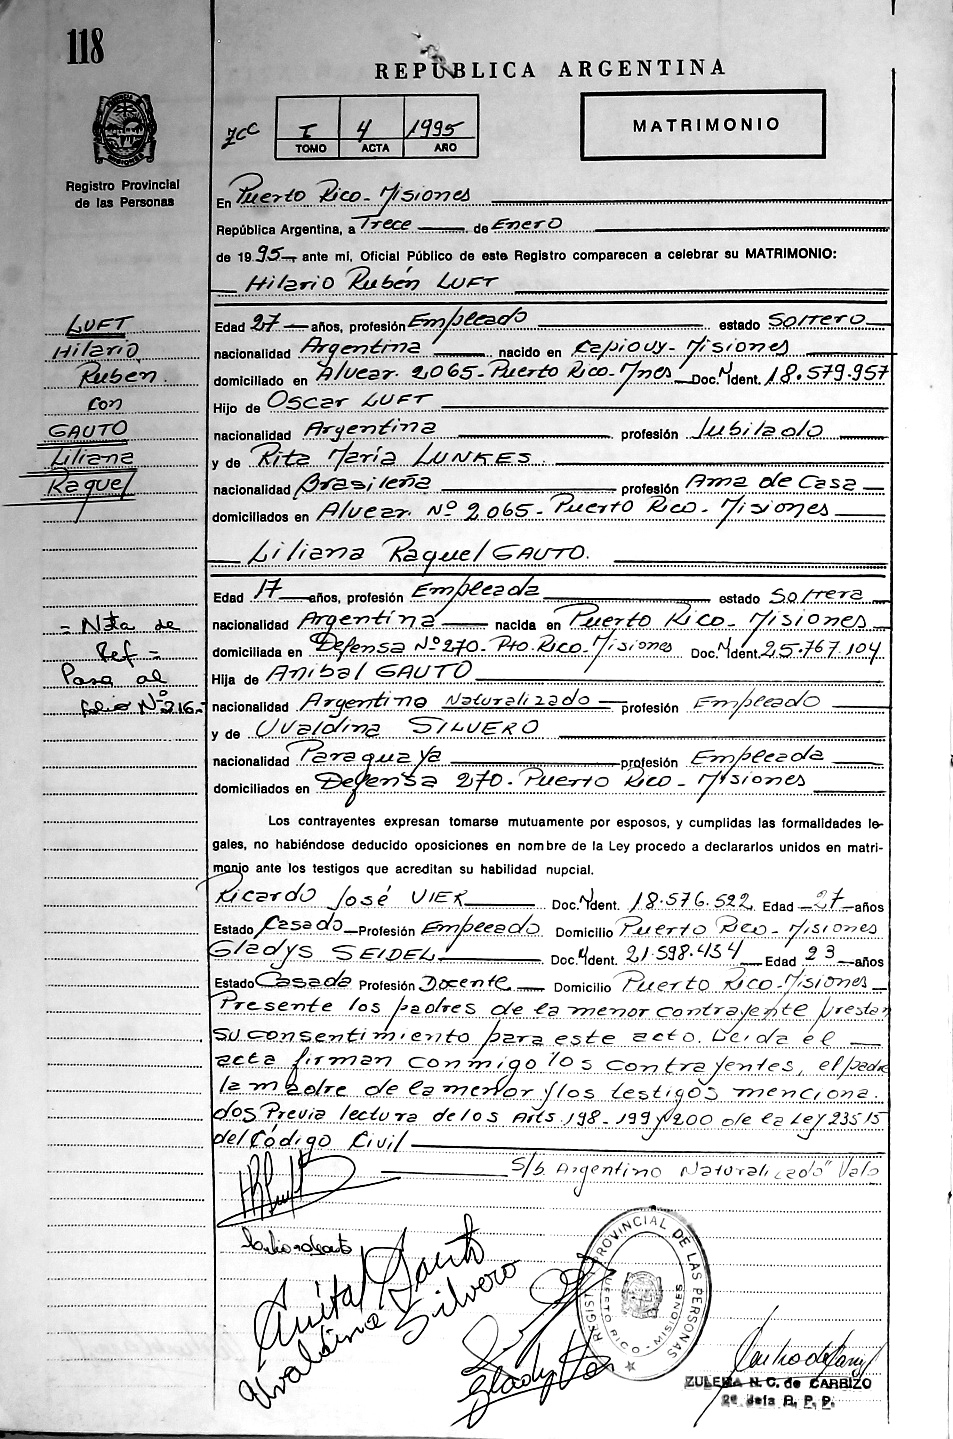 118
REPÚBLICA ARGENTINA
I 4 1995
TOMO ACTA AÑO
MATRIMONIO
PROVINCIA DE MISIONES
Registro Provincial
de las Personas
En Puerto Rico - Misiones
República Argentina, a Trece de Enero
de 19 95 ante mí, Oficial Público de este Registro comparecen a celebrar su MATRIMONIO:
Hilario Rubén LUFT
LUFT
Hilario
Ruben
con
GAUTO
Liliana
Raquel
Edad 27 años, profesión Empleado estado Soltero
nacionalidad Argentina nacido en Capiovy - Misiones
domiciliado en Alvear. 2065 - Puerto Rico - Mnes Doc. N Ident. 18.579.957
Hijo de Oscar LUFT
nacionalidad Argentina profesión Jubilado
y de Rita María LUNKES.
nacionalidad Brasileña profesión Ama de Casa
domiciliados en Alvear. Nº 2065 - Puerto Rico - Misiones
Liliana Raquel GAUTO.
Edad 17 años, profesión Empleada estado Soltera
nacionalidad Argentina nacida en Puerto Rico - Misiones
domiciliada en Defensa Nº 270 - Pto. Rico - Misiones Doc. N Ident. 25.767.104
Hija de Anibal GAUTO
nacionalidad Argentino Naturalizado profesión Empleado
y de Uvaldina SILVERO
nacionalidad Paraguaya profesión Empleada
domiciliados en Defensa 270 - Puerto Rico - Misiones
= Nota de
Ref =
Pasa al
folio Nº 216.-
Los contrayentes expresan tomarse mutuamente por esposos, y cumplidas las formalidades le-
gales, no habiéndose deducido oposiciones en nombre de la Ley procedo a declararlos unidos en matri-
monio ante los testigos que acreditan su habilidad nupcial.
Ricardo José VIER Doc. N Ident. 18.576.522 Edad 27 años
Estado Casado Profesión Empleado Domicilio Puerto Rico - Misiones
Gladys SEIDEL Doc. N Ident. 21.598.434 Edad 23 años
Estado Casada Profesión Docente Domicilio Puerto Rico - Misiones
Presente los padres de la menor contrayente prestan
su consentimiento para este acto. Leida el
acta firman conmigo los contrayentes, el padre
la madre de la menor y los testigos menciona.
dos Previa lectura de los Arts. 198 - 199 y 200 de la Ley 23515
del Código Civil
S/b "Argentino Naturalizado" Vale
Anibal Gauto
Uvaldina Silvero
REGISTRO PROVINCIAL DE LAS PERSONAS
PUERTO RICO - MISIONES
ZULEMA N. C. de CARRIZO
2º Jefa R. P. P.